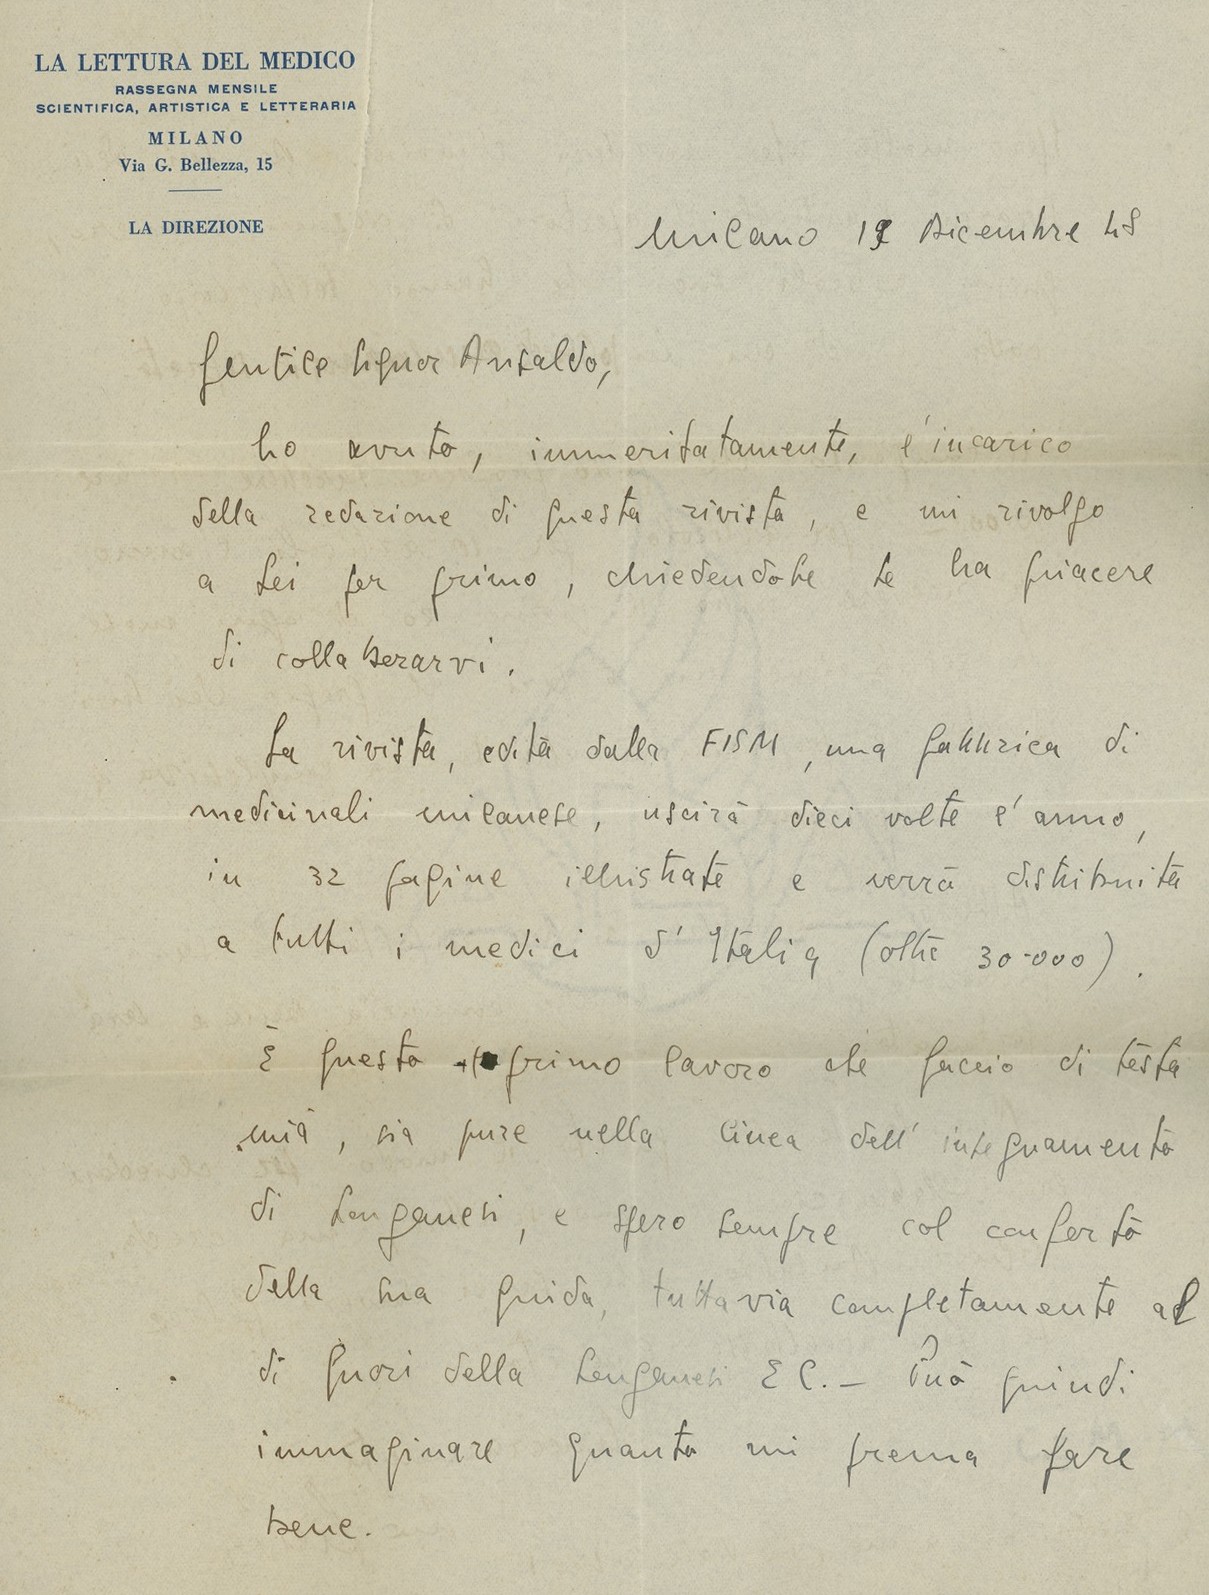 LA LETTURA DEL MEDICO
RASSEGNA MENSILE
SCIENTIFICA, ARTISTICA E LETTERARIA
MILANO
Via G. Bellezza, 15
LA DIREZIONE
Milano Dicembre 48
Gentile Signor Ansaldo,
ho avuto, immeritatamente, l'incarico
della redazione di questa rivista, e mi rivolgo
a Lei per primo, chiedendole se ha piacere
di collaborarvi.
La rivista, edita dalla FISM, una fabbrica di
medicinali milanese, uscirà dieci volte l'anno,
in 32 pagine illustrate e verrà distribuita
a tutti i medici d'Italia (oltre 30.000).
È questo primo lavoro che faccio di testa
mia, sia pure nella linea dell'insegnamento
di Longanesi, e spero sempre col conforto
della sua guida, tuttavia completamente al
di fuori della Longanesi E C. - Può quindi
immaginare quanto mi prema fare
bene.